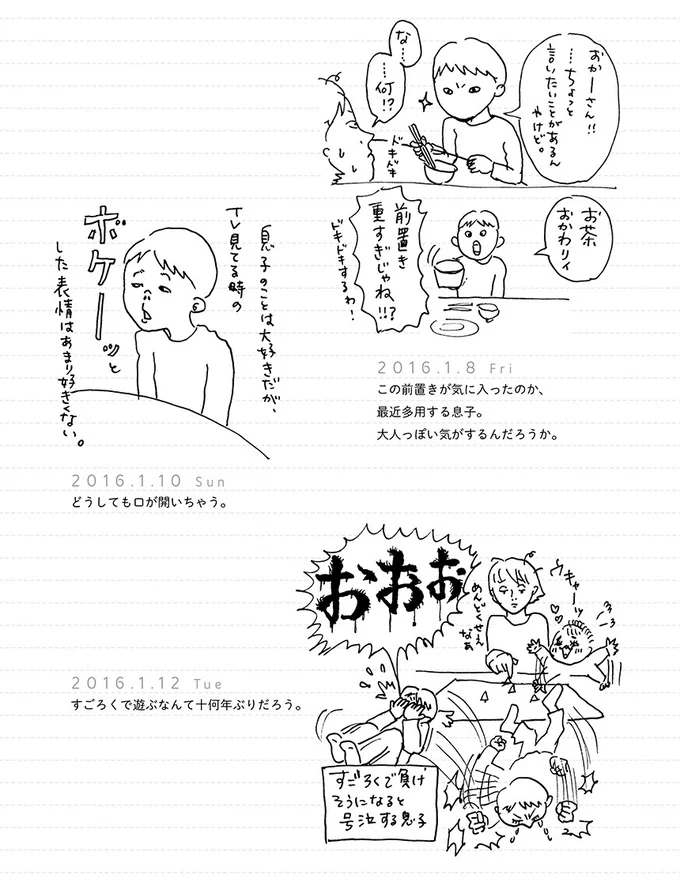 おかーさん!!
…ちょっと
言いたいことがあるん
やけど。
な…
…何!?
ドキドキ
お茶
おかわりィ
前置き
重すぎじゃね!!?
ドキドキするわ!
2016.1.8 Fri
この前置きが気に入ったのか、
最近多用する息子。
大人っぽい気がするんだろうか。
息子のことは大好きだが、
TV見てる時の
ポケーッと
した表情はあまり好きくない。
2016.1.10 Sun
どうしても口が開いちゃう。
ウキャーッ
めんどくせえ
なあ
おおお
すごろくで負け
そうになると
号泣する息子
2016.1.12 Tue
すごろくで遊ぶなんて十何年ぶりだろう。